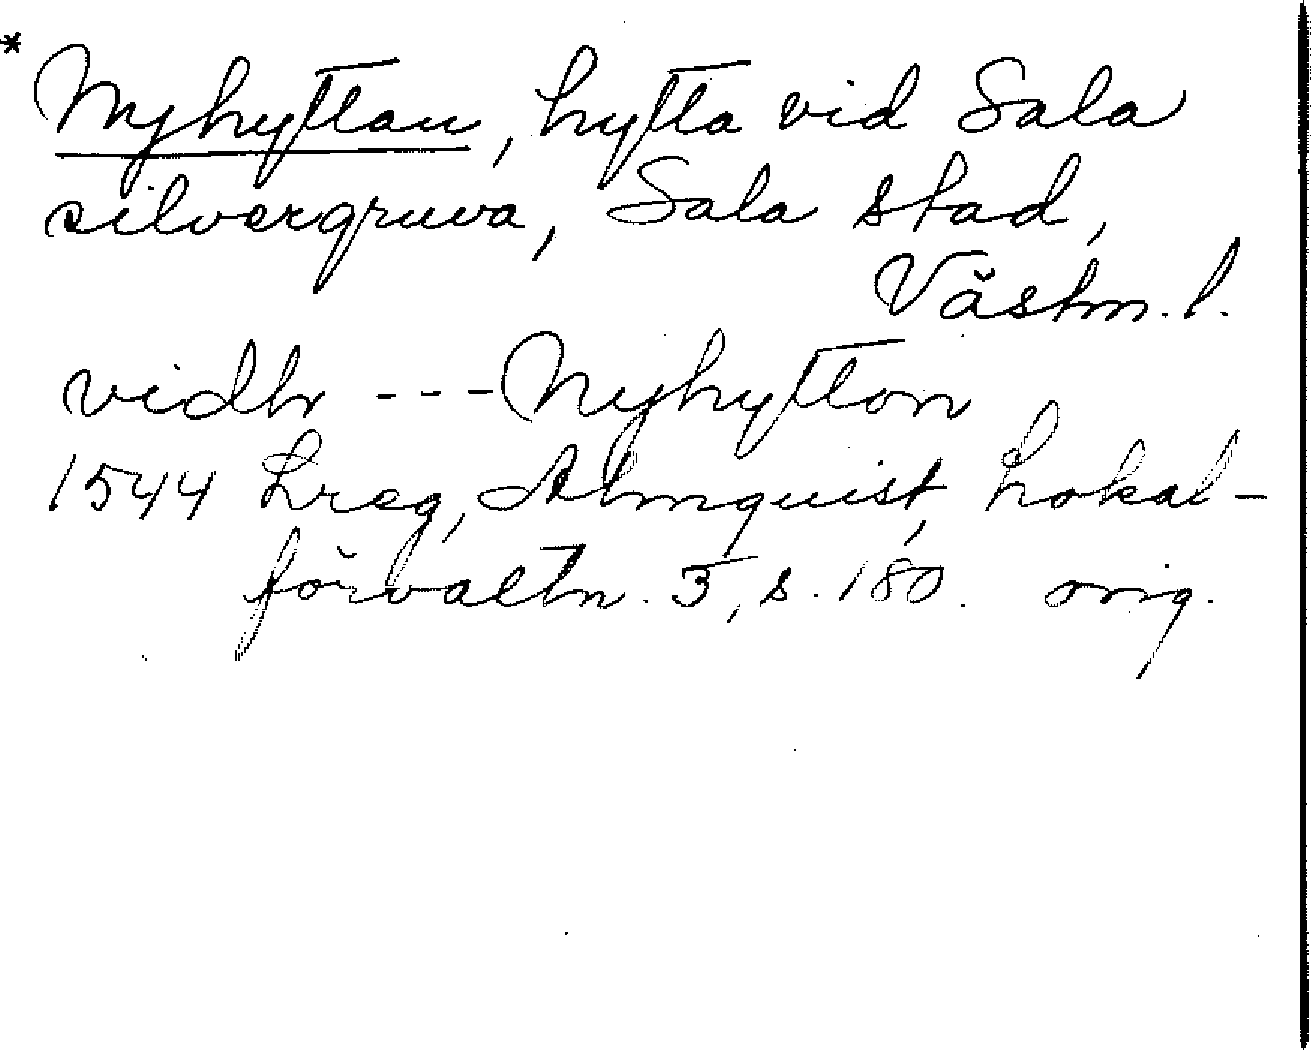 * Nyhyttan, hytta vid Sala
silvergruva, Sala stad,
Västm. l.
vidh --- Nyhytton
1544 Lreg, Almquist, Lokal-
förvaltn. 3, s. 180. orig.